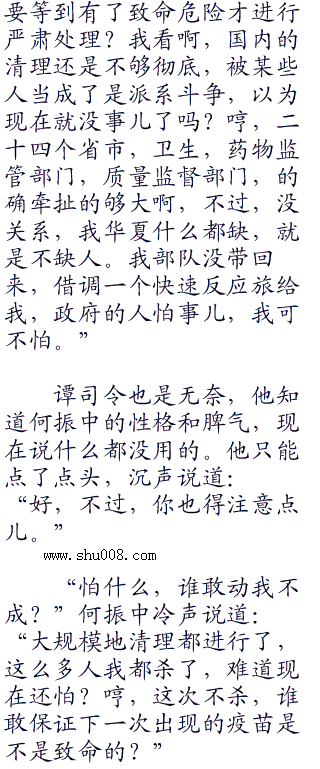 要等到有了致命危险才进行
严肃处理？我看啊，国内的
清理还是不够彻底，被某些
人当成了是派系斗争，以为
现在就没事儿了吗？哼，二
十四个省市，卫生，药物监
管部门，质量监督部门，的
确牵扯的够大啊，不过，没
关系，我华夏什么都缺，就
是不缺人。我部队没带回
来，借调一个快速反应旅给
我，政府的人怕事儿，我可
不怕。”
谭司令也是无奈，他知
道何振中的性格和脾气，现
在说什么都没用的。他只能
点了点头，沉声说道：
“好，不过，你也得注意点
儿。”
www.shu008.com
“怕什么，谁敢动我不
成？”何振中冷声说道：
“大规模地清理都进行了，
这么多人我都杀了，难道现
在还怕？哼，这次不杀，谁
敢保证下一次出现的疫苗是
不是致命的？”